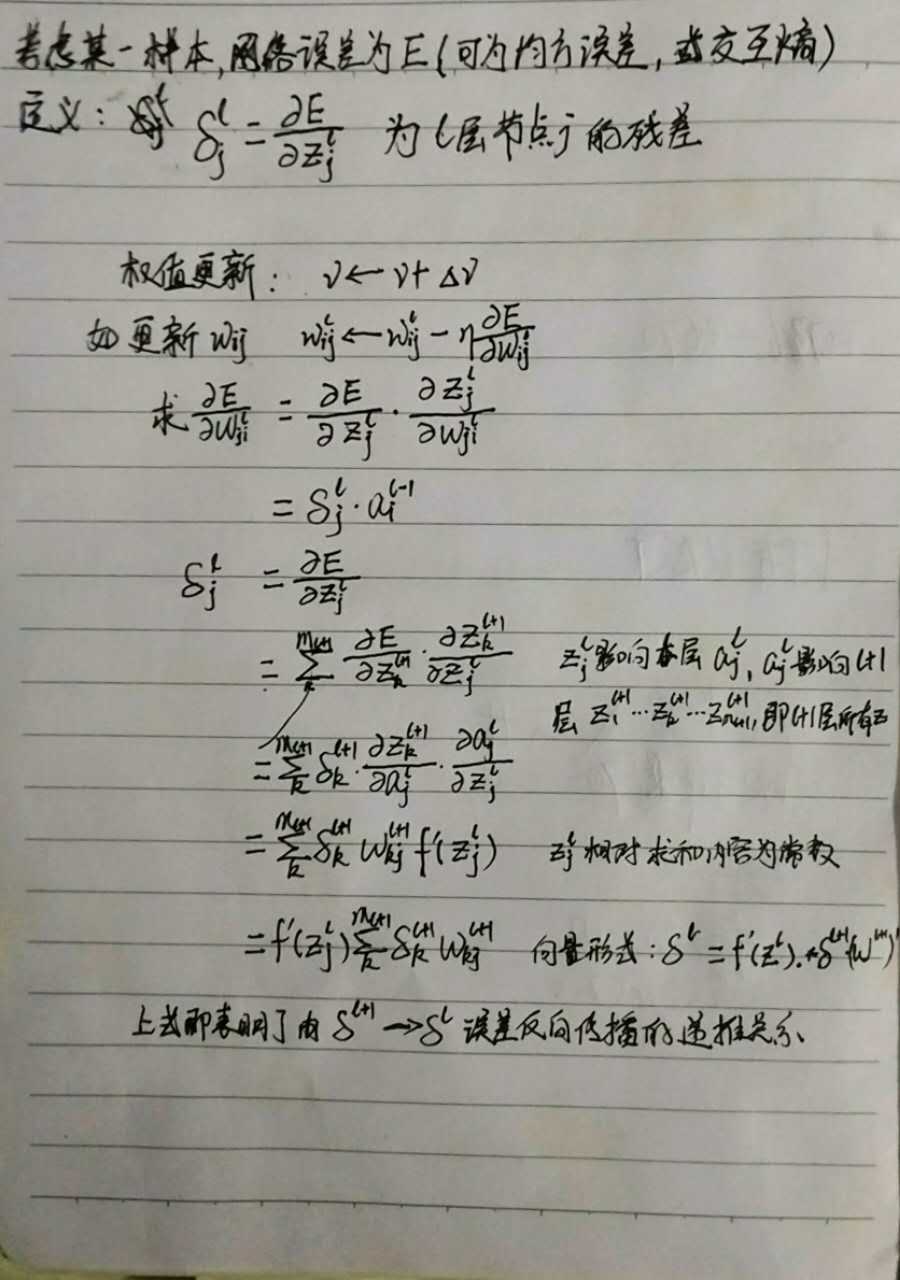 考虑某一样本,网络误差为E(可为均方误差,或交互熵)
定义: δ_j^l = ∂E/∂z_j^l 为l层节点j的残差
权值更新: v ← v + Δv
如更新 w_ij w_ij^l ← w_ij^l - η ∂E/∂w_ij^l
求 ∂E/∂w_ji^l = ∂E/∂z_j^l · ∂z_j^l/∂w_ji^l
= δ_j^l · a_i^{l-1}
δ_j^l = ∂E/∂z_j^l
= Σ_k^{m_{l+1}} ∂E/∂z_k^{l+1} · ∂z_k^{l+1}/∂z_j^l z_j^l影响本层a_j^l, a_j^l影响l+1
层 z_1^{l+1}…z_k^{l+1}…z_{m_{l+1}}^{l+1}, 即l+1层所有z
= Σ_k^{m_{l+1}} δ_k^{l+1} · ∂z_k^{l+1}/∂a_j^l · ∂a_j^l/∂z_j^l
= Σ_k^{m_{l+1}} δ_k^{l+1} w_kj^{l+1} f'(z_j^l) z_j^l相对求和内容为常数
= f'(z_j^l) Σ_k^{m_{l+1}} δ_k^{l+1} w_kj^{l+1} 向量形式: δ^l = f'(z^l).*δ^{l+1}(w^{l+1})'
上式即表明了由 δ^{l+1} → δ^l 误差反向传播的递推关系